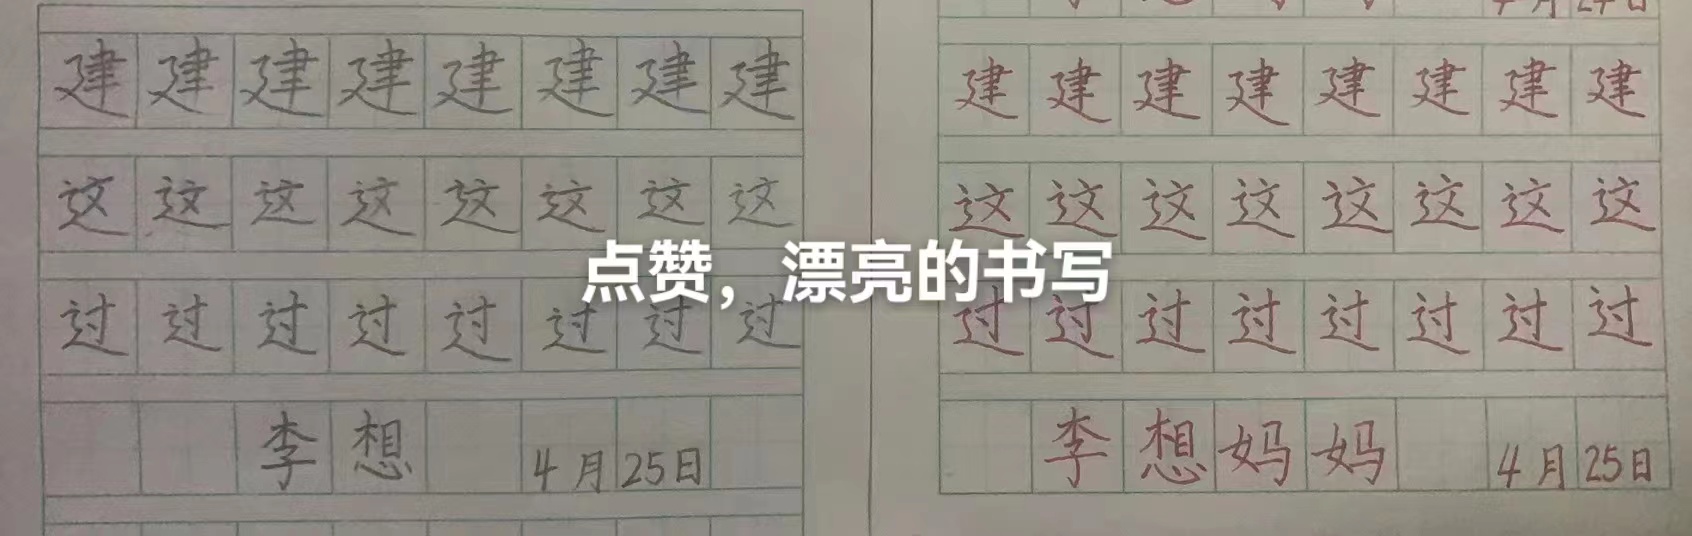 建建建建建建建建
这这这这这这这这
过过过过过过过过
李想 4月25日
点赞，漂亮的书写
4月24日
建建建建建建建建
这这这这这这这这
过过过过过过过过
李想妈妈 4月25日